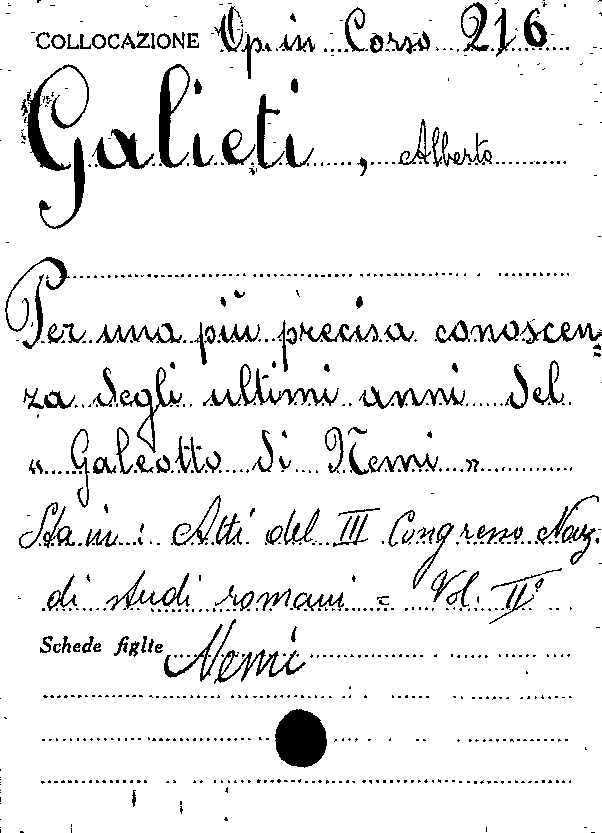 COLLOCAZIONE Op. in Corso 216
Galieti, Alberto
Per una più precisa conoscen=
za degli ultimi anni del
« Galeotto di Nemi »
Sta in: Atti del III Congresso Naz.
di studi romani = Vol. II°
Schede figlie Nemi